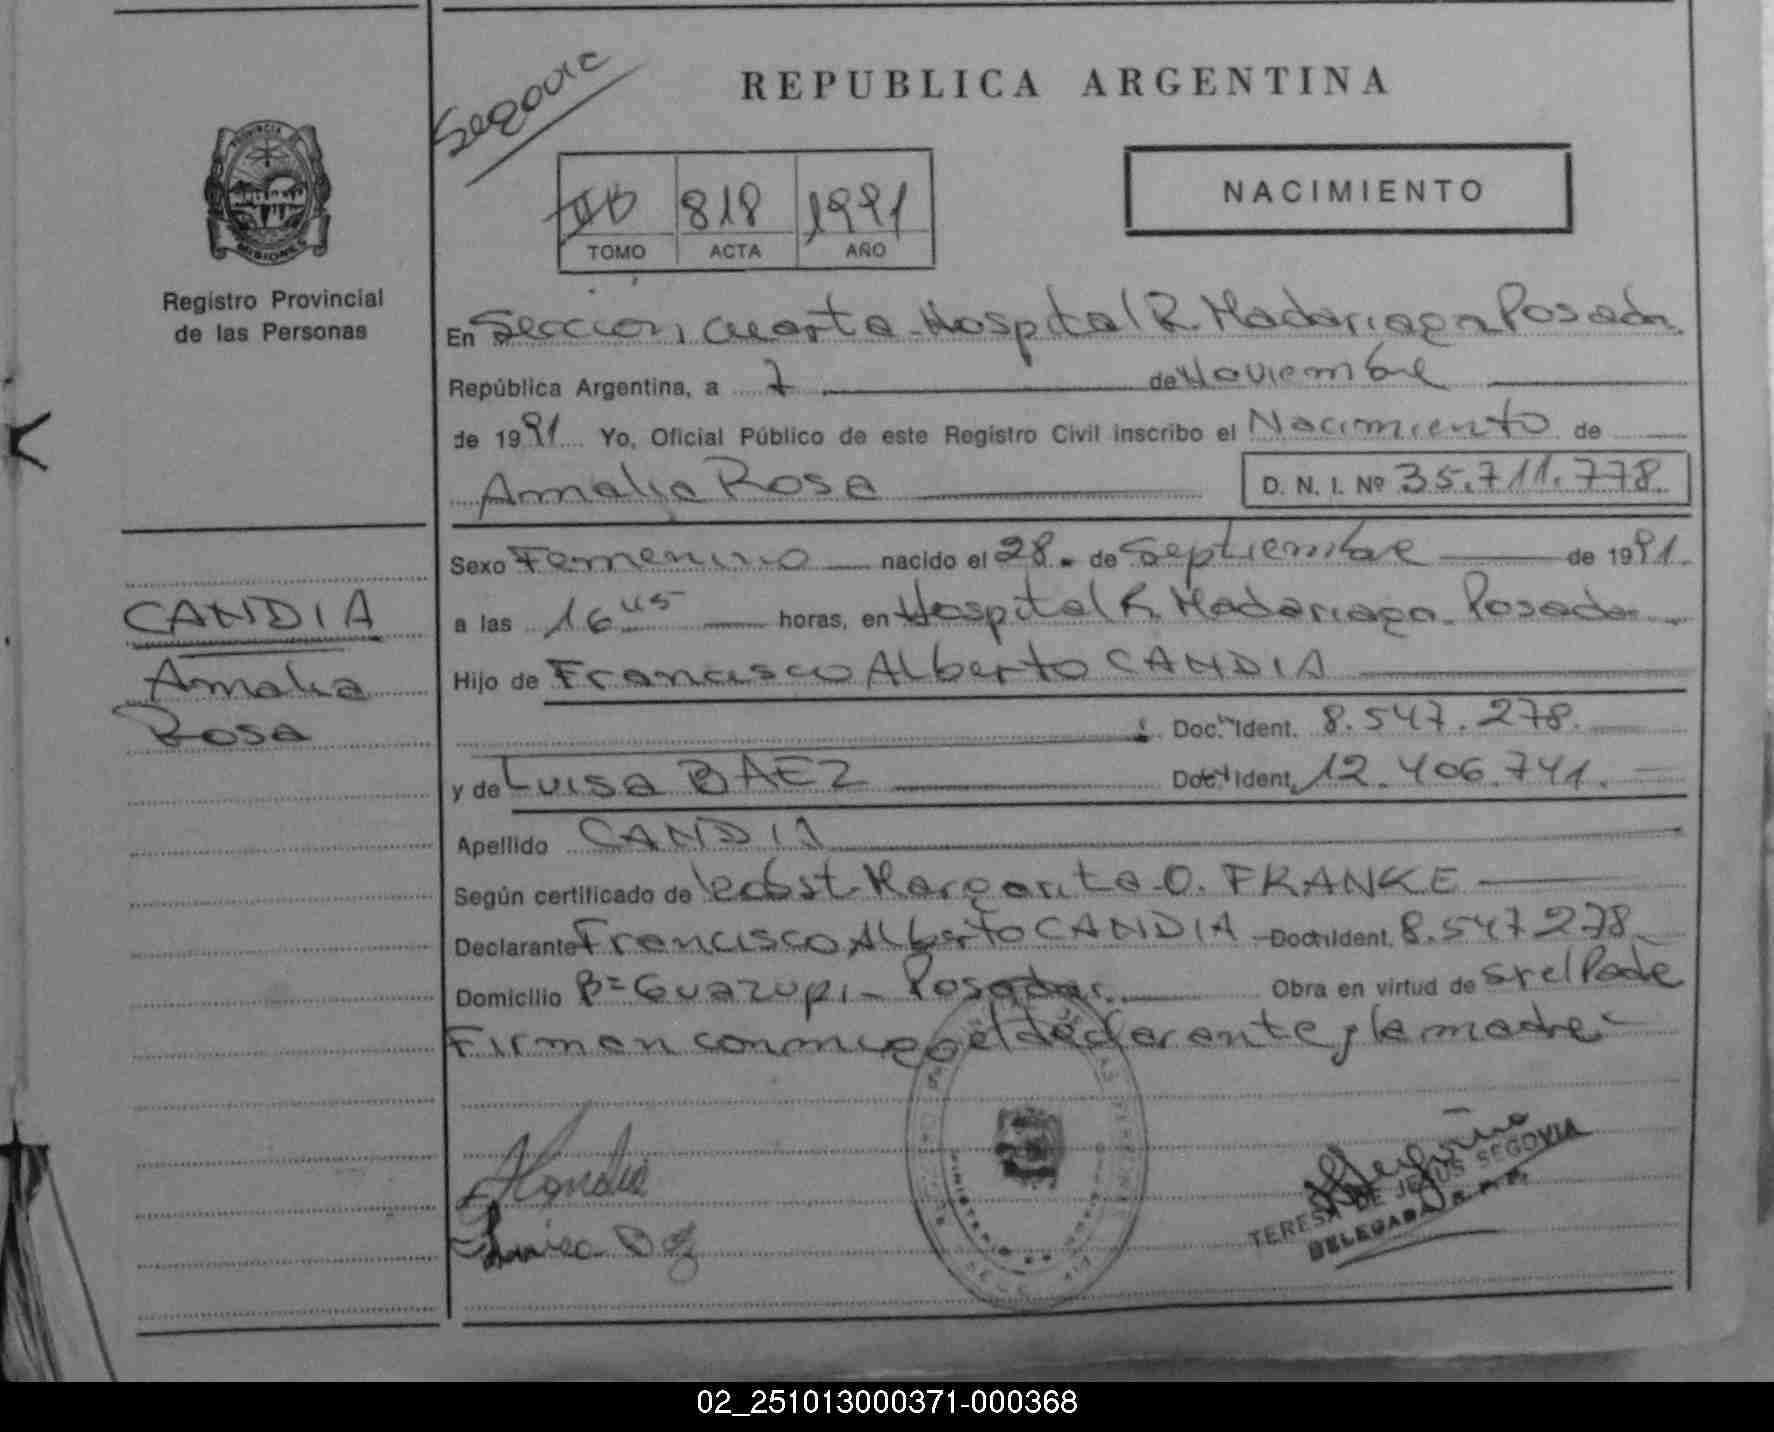 Segovia
REPUBLICA ARGENTINA
PROVINCIA DE
MISIONES
Registro Provincial
de las Personas
818 1991
TOMO ACTA AÑO
NACIMIENTO
En Sección Cuarta-Hospital R. Madariaga Posadas
República Argentina, a 7 de Noviembre
de 1991 Yo, Oficial Público de este Registro Civil inscribo el Nacimiento de
Amalia Rosa D. N. I. Nº 35.711.778
CANDIA
Amalia
Rosa
Sexo Femenino nacido el 28 de Septiembre de 1991.
a las 16 45 horas, en Hospital R. Madariaga. Posadas
Hijo de Francisco Alberto CANDIA
Doc. Ident. 8.547.278.
y de Luisa BAEZ Doc. Ident. 12.406.741.
Apellido CANDIA
Según certificado de Margarita O. FRANKE
Declarante Francisco Alberto CANDIA Doc. Ident. 8.547.278
Domicilio Bº Guazupi - Posadas. Obra en virtud de Sr el Padre
Firman conmigo el declarante y la madre
TERESA DE JESUS SEGOVIA
DELEGADA R. P. P.
02_251013000371-000368